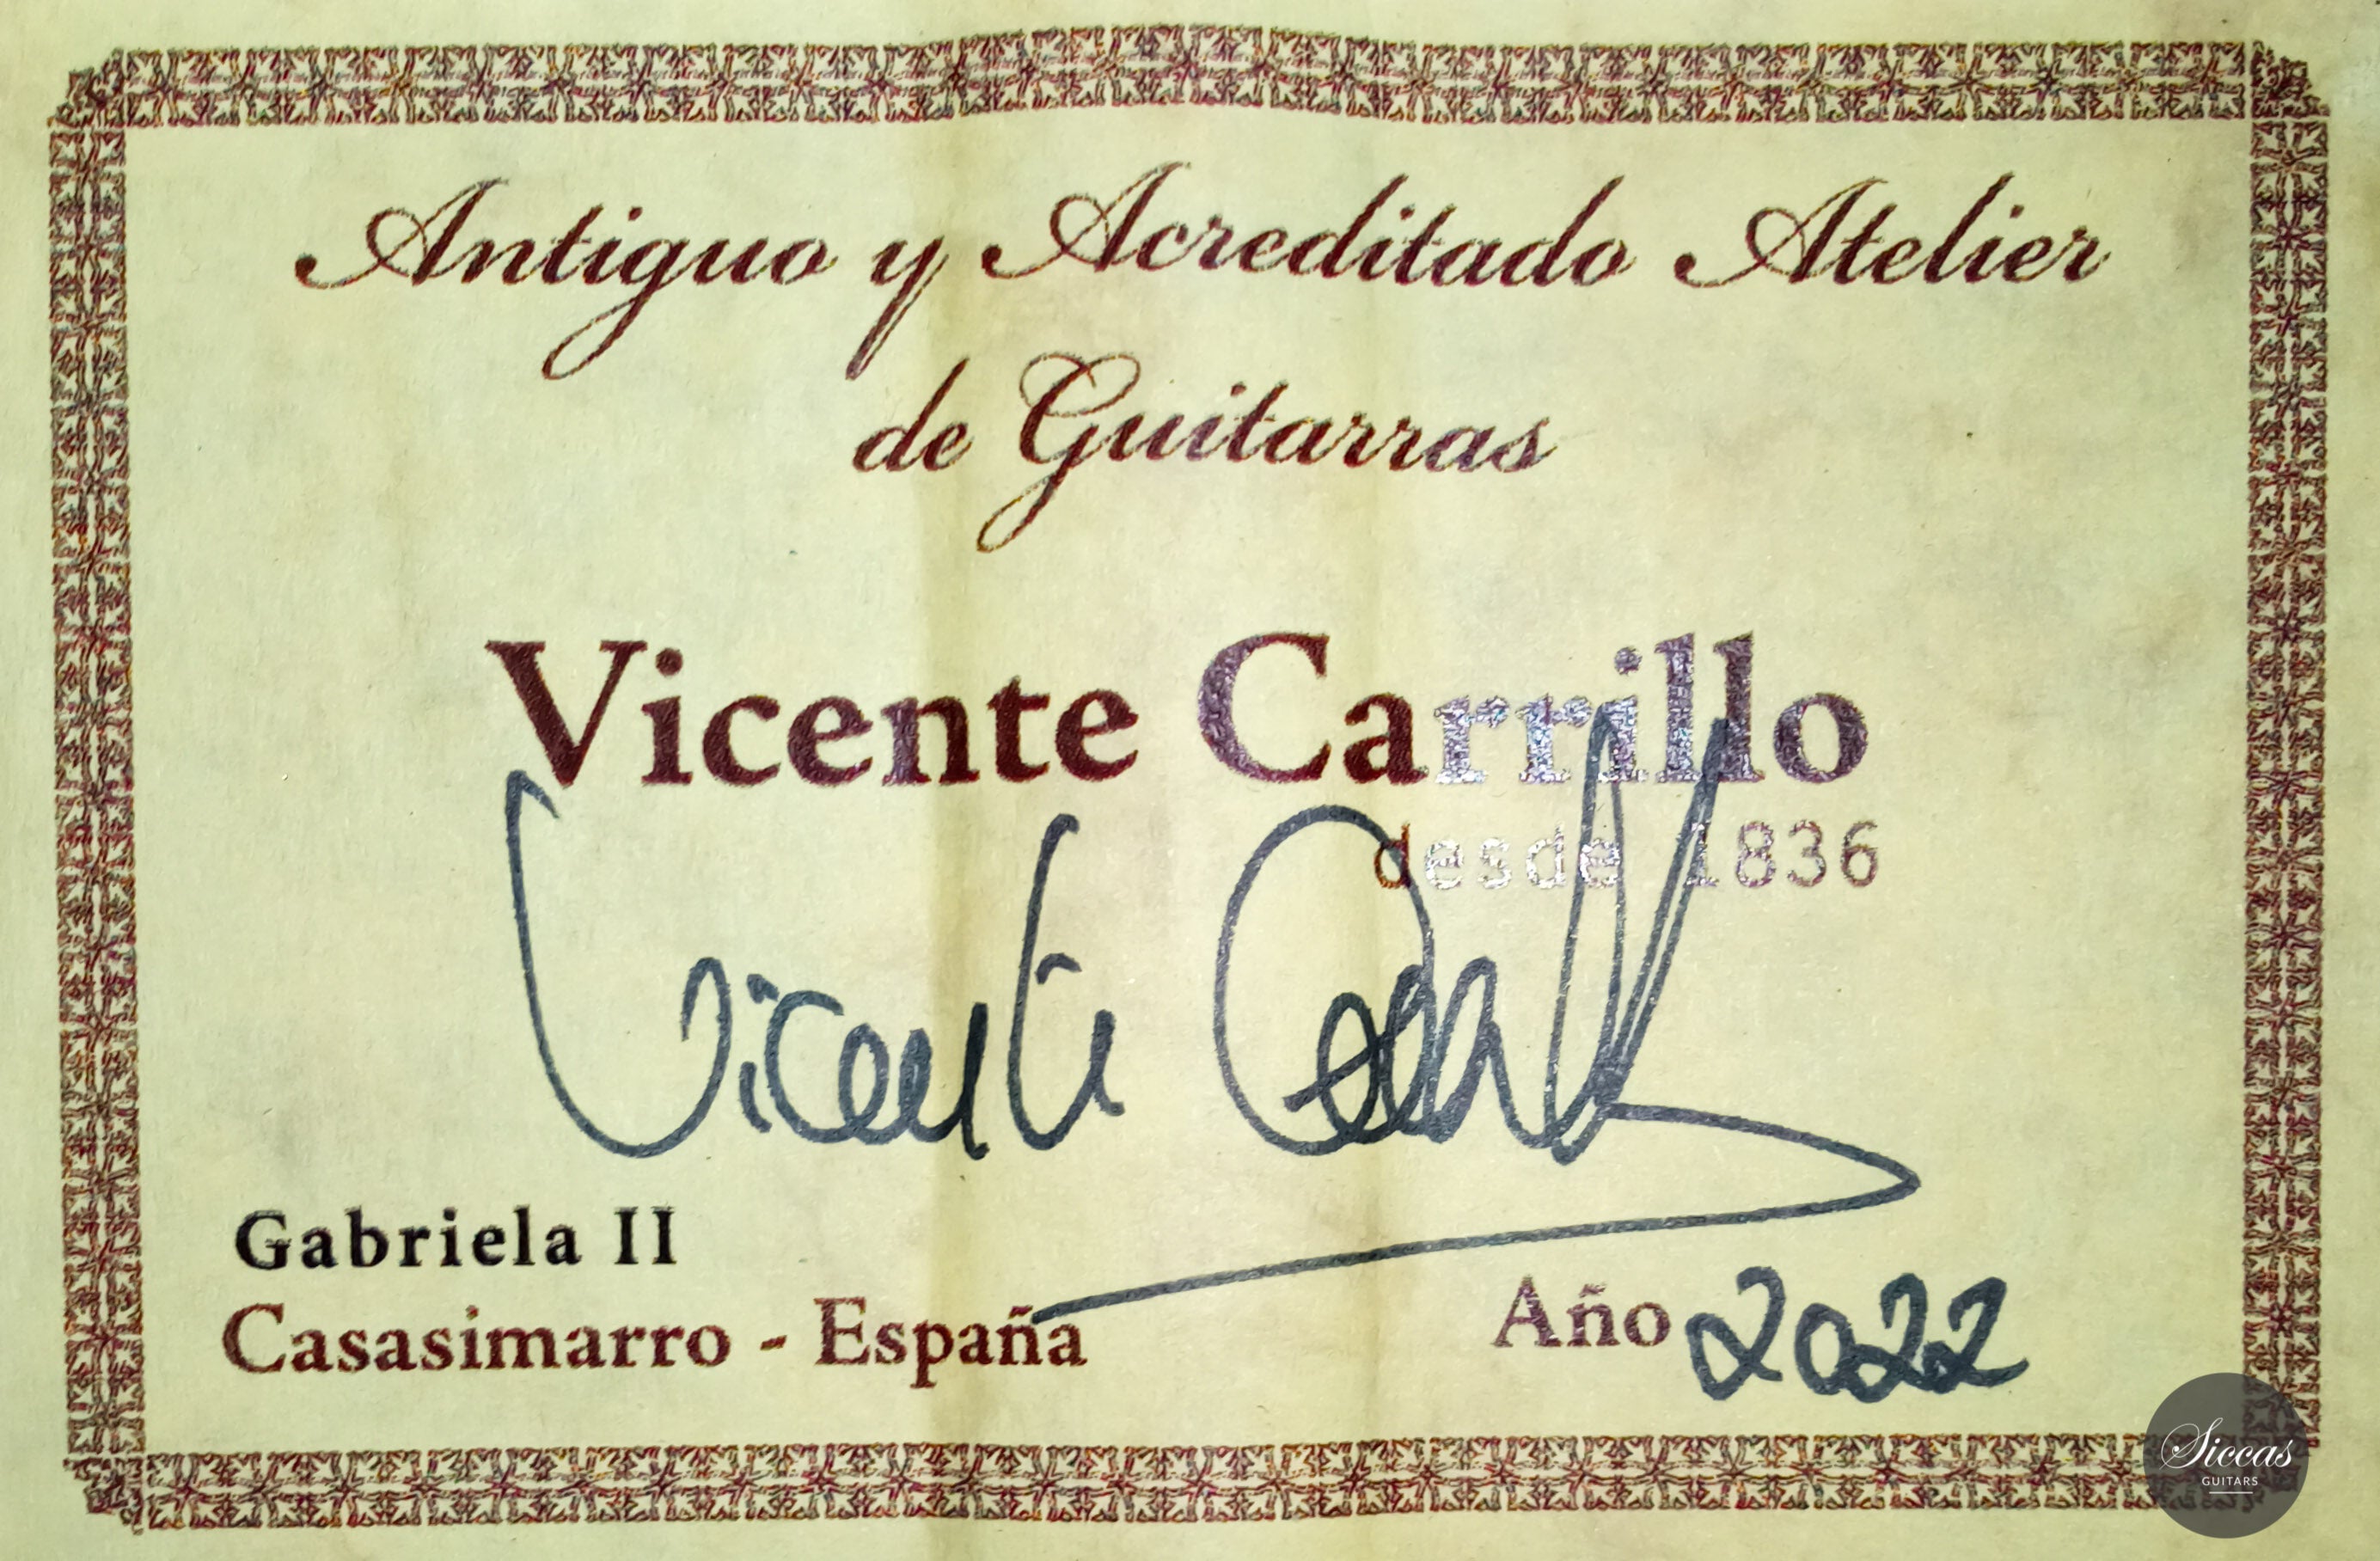 Antiguo y Acreditado Atelier
de Guitarras
Vicente Carrillo
desde 1836
Vicente Carrillo
Gabriela II
Casasimarro - España
Año 2022
Siccas
GUITARS